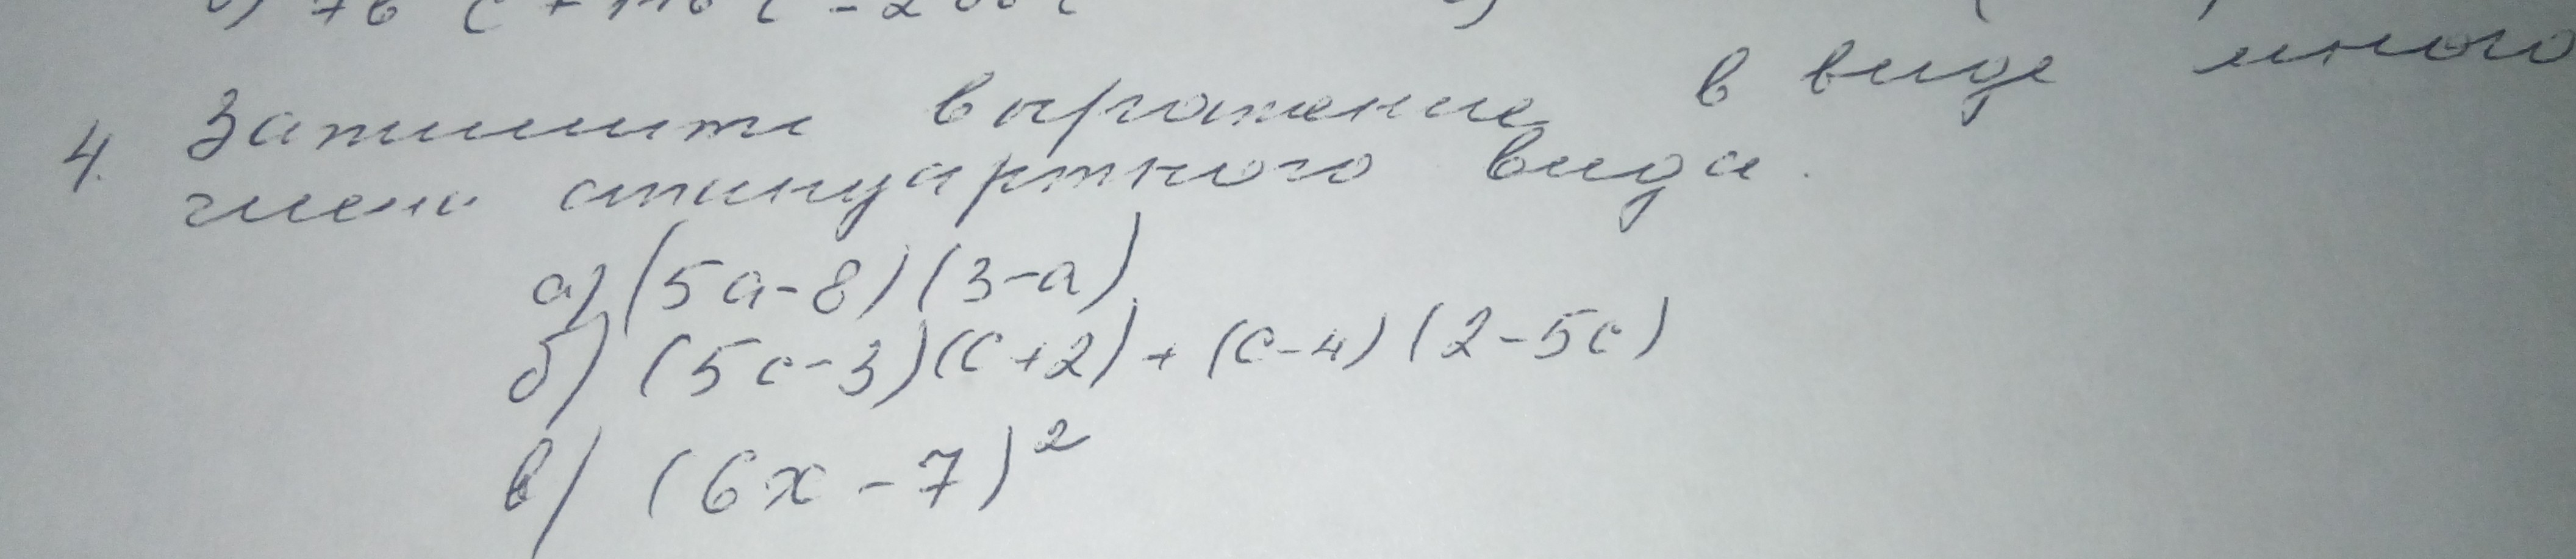 4. Запишите выражение в виде много
члена стандартного вида.
а) (5a-8)(3-a)
б) (5c-3)(c+2)+(c-4)(2-5c)
в) (6x-7)²